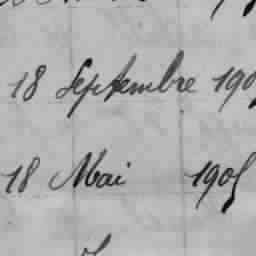 18 Septembre 190
18 Mai 1905